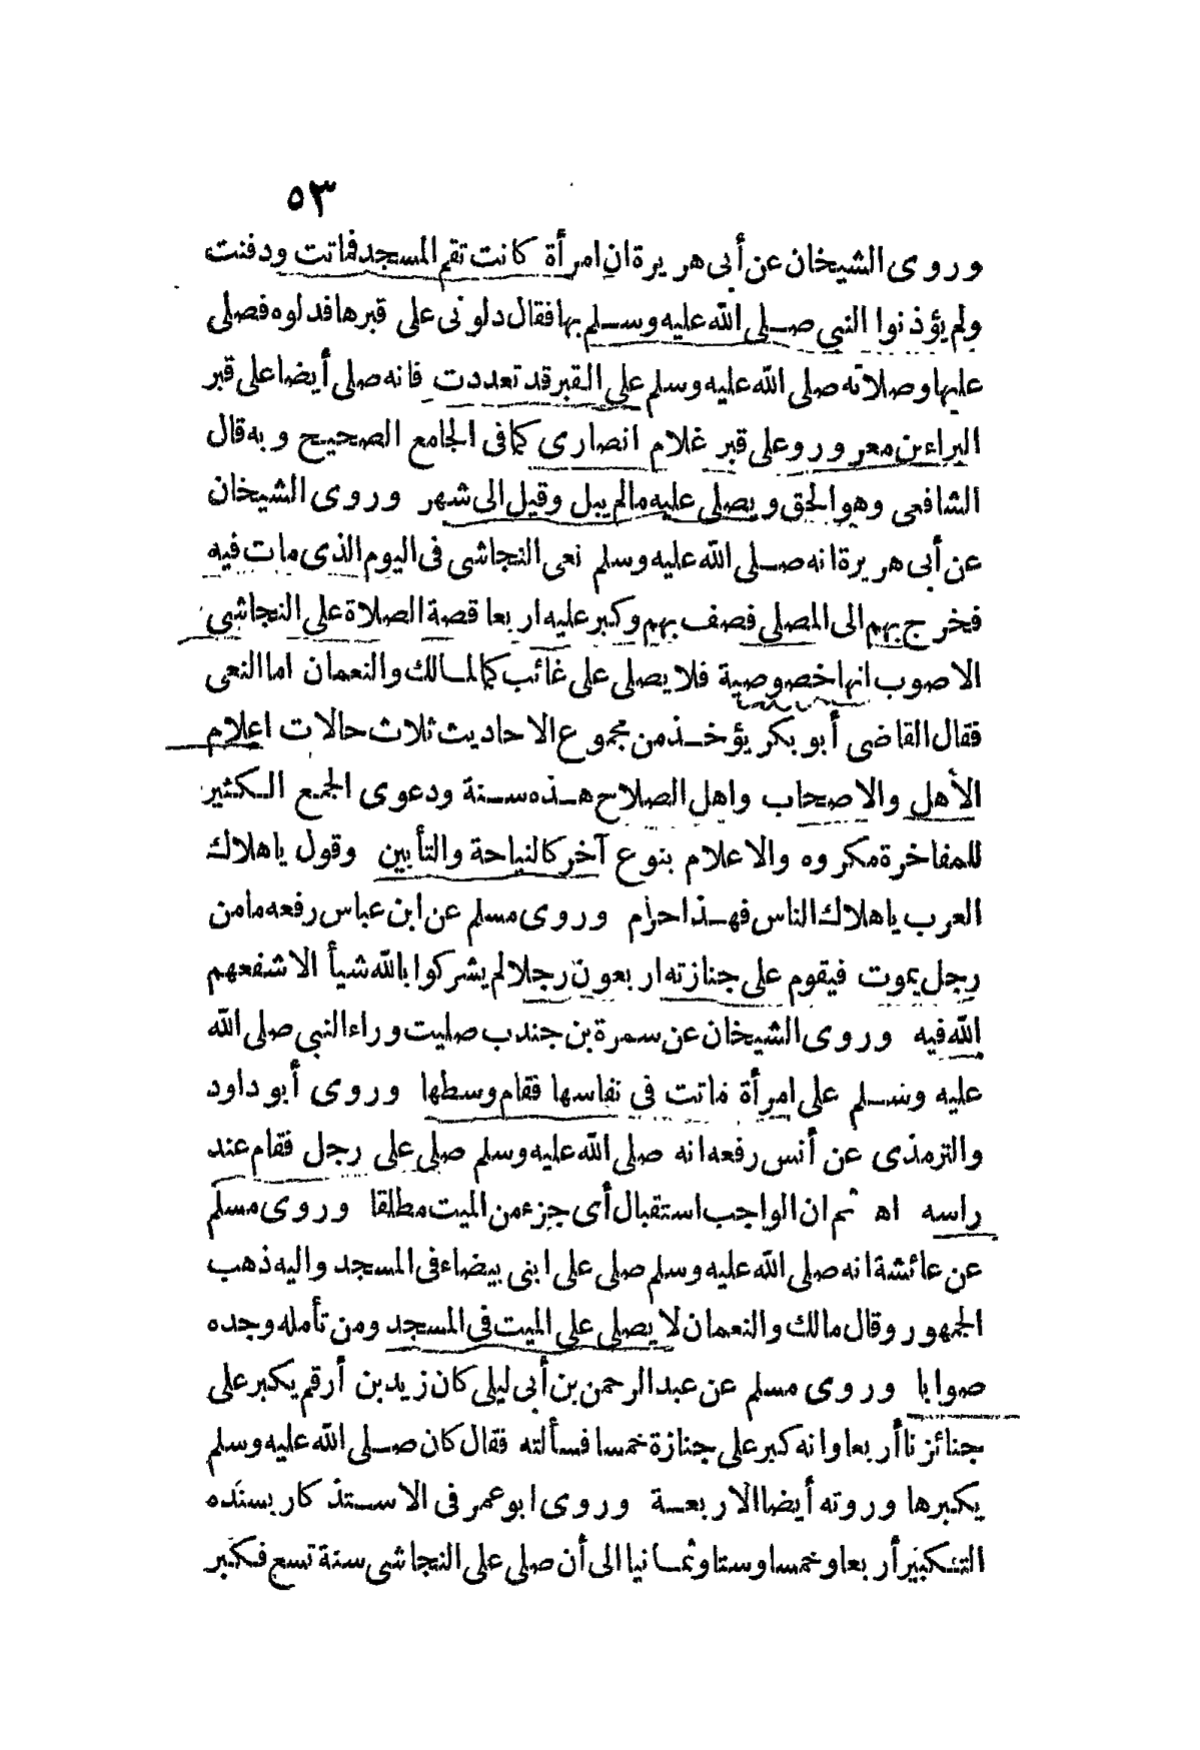 ٥٣
وروى الشيخان عن أبى هريرة ان امرأة كانت تقم المسجد فماتت ودفنت
ولم يؤذنوا النبي صلى الله عليه وسلم بها فقال دلونى على قبرها فدلوه فصلى
عليها وصلاته صلى الله عليه وسلم على القبر قد تعددت فانه صلى أيضا على قبر
البراء بن معرور وعلى قبر غلام انصارى كما فى الجامع الصحيح وبه قال
الشافعى وهو الحق ويصلى عليه مالم يبل وقيل الى شهر وروى الشيخان
عن أبى هريرة انه صلى الله عليه وسلم نعى النجاشى فى اليوم الذى مات فيه
فخرج بهم الى المصلى فصف بهم وكبر عليه اربعا قصة الصلاة على النجاشى
الاصوب انها خصوصية فلا يصلى على غائب كما لمالك والنعمان اما النعى
فقال القاضى أبو بكر يؤخذ من مجموع الاحاديث ثلاث حالات اعلام
الأهل والاصحاب واهل الصلاح هذه سنة ودعوى الجمع الكثير
للمفاخرة مكروه والاعلام بنوع آخر كالنياحة والتأبين وقول ياهلاك
العرب ياهلاك الناس فهذا حرام وروى مسلم عن ابن عباس رفعه مامن
رجل يموت فيقوم على جنازته اربعون رجلا لم يشركوا بالله شيأ الا شفعهم
الله فيه وروى الشيخان عن سمرة بن جندب صليت وراء النبي صلى الله
عليه وسلم على امرأة ماتت فى نفاسها فقام وسطها وروى أبو داود
والترمذى عن أنس رفعه انه صلى الله عليه وسلم صلى على رجل فقام عند
راسه اه ثم ان الواجب استقبال أى جزء من الميت مطلقا وروى مسلم
عن عائشة انه صلى الله عليه وسلم صلى على ابنى بيضاء فى المسجد واليه ذهب
الجمهور وقال مالك والنعمان لا يصلى على الميت فى المسجد ومن تأمله وجده
صوابا وروى مسلم عن عبد الرحمن بن أبى ليلى كان زيد بن أرقم يكبر على
جنائزنا أربعا وانه كبر على جنازة خمسا فسألته فقال كان صلى الله عليه وسلم
يكبرها وروته أيضا الاربعة وروى ابو عمر فى الاستذكار بسنده
التكبير أربعا وخمسا وستا وثمانيا الى أن صلى على النجاشى سنة تسع فكبر